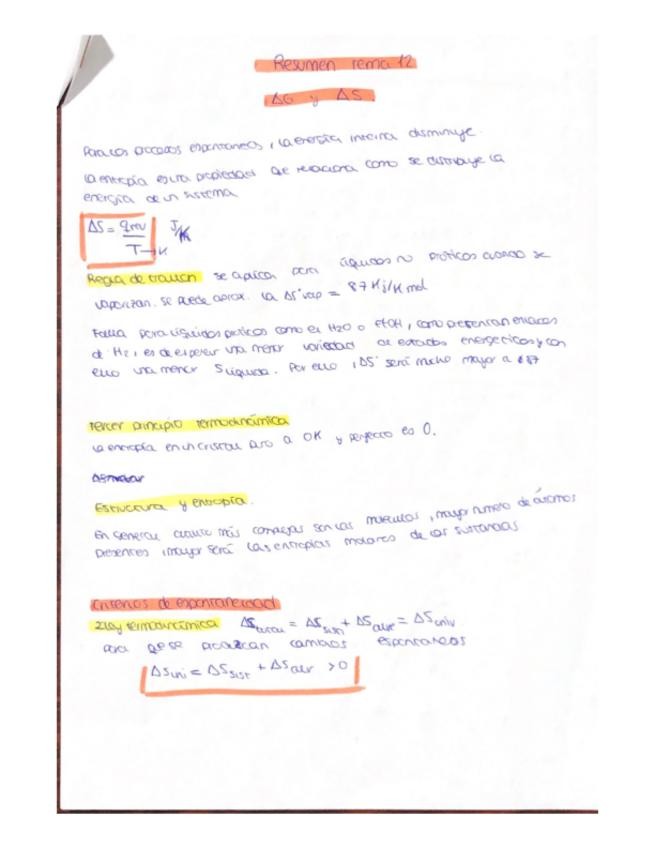 Resumen tema 12
ΔG y ΔS.
Para los procesos espontaneos, la energía interna disminuye.
La entropía es una propiedad que relaciona como se distribuye la
energía de un sistema
ΔS = qrev / T → K J/K
Regla de trouton se aplica para líquidos no próticos cuando se
vaporizan. se puede aprox. la ΔS°vap = 87 Kj/K mol
Falla para líquidos proticos como el H2O o EtOH, como presentan enlaces
de H2, es de esperar una menor variedad de estados energeticos y con
ello una menor S líquida. Por ello, ΔS° será mucho mayor a 87
Tercer principio termodinámica
la entropía en un cristal puro a 0K y perfecto es 0.
Estructura y entropía.
En general cuanto más complejas son las moleculas, mayor numero de átomos
presentes, mayor será las entropías molares de las sustancias
Criterios de espontaneidad
2 ley termodinámica ΔStotal = ΔSsist + ΔSalr = ΔSuniv
para que se produzcan cambios espontaneos
ΔSuni = ΔSsist + ΔSalr > 0